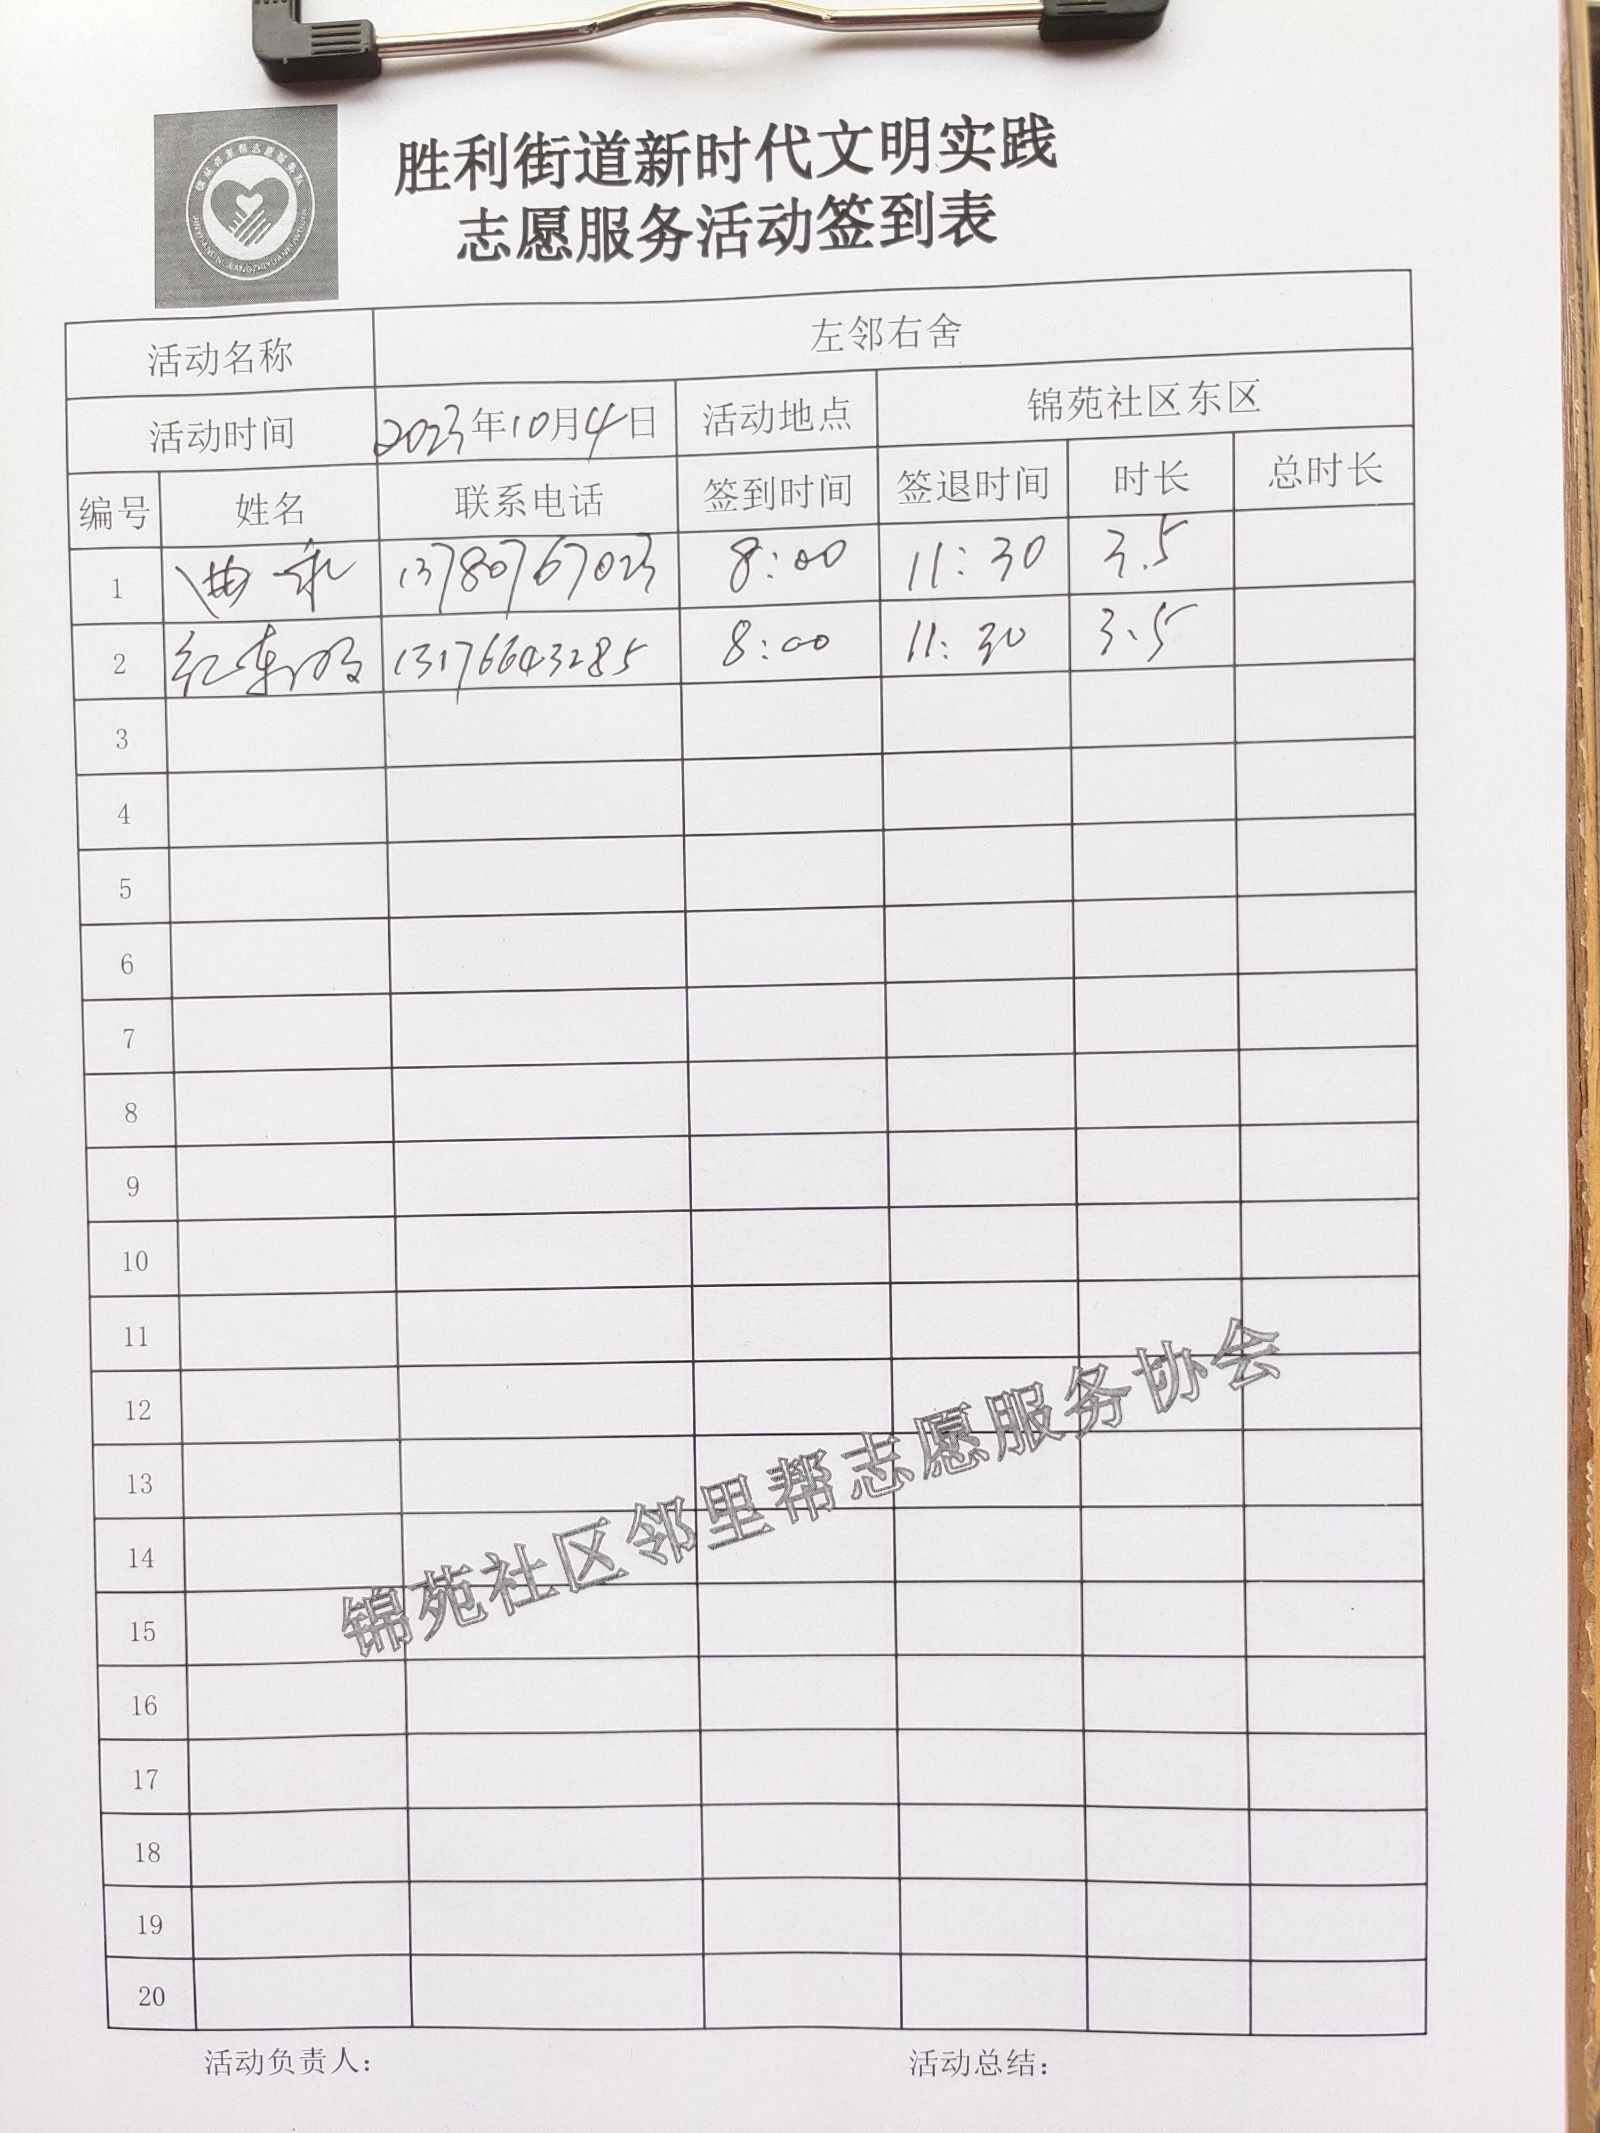 胜利街道新时代文明实践
志愿服务活动签到表
活动名称 左邻右舍
活动时间 2023年10月4日 活动地点 锦苑社区东区
编号 姓名 联系电话 签到时间 签退时间 时长 总时长
1 曲永 13780767023 8:00 11:30 3.5
2 13176643285 8:00 11:30 3.5
3
4
5
6
7
8
9
10
11
12
13
14
15
16
17
18
19
20
锦苑社区邻里帮志愿服务协会
活动负责人： 活动总结：